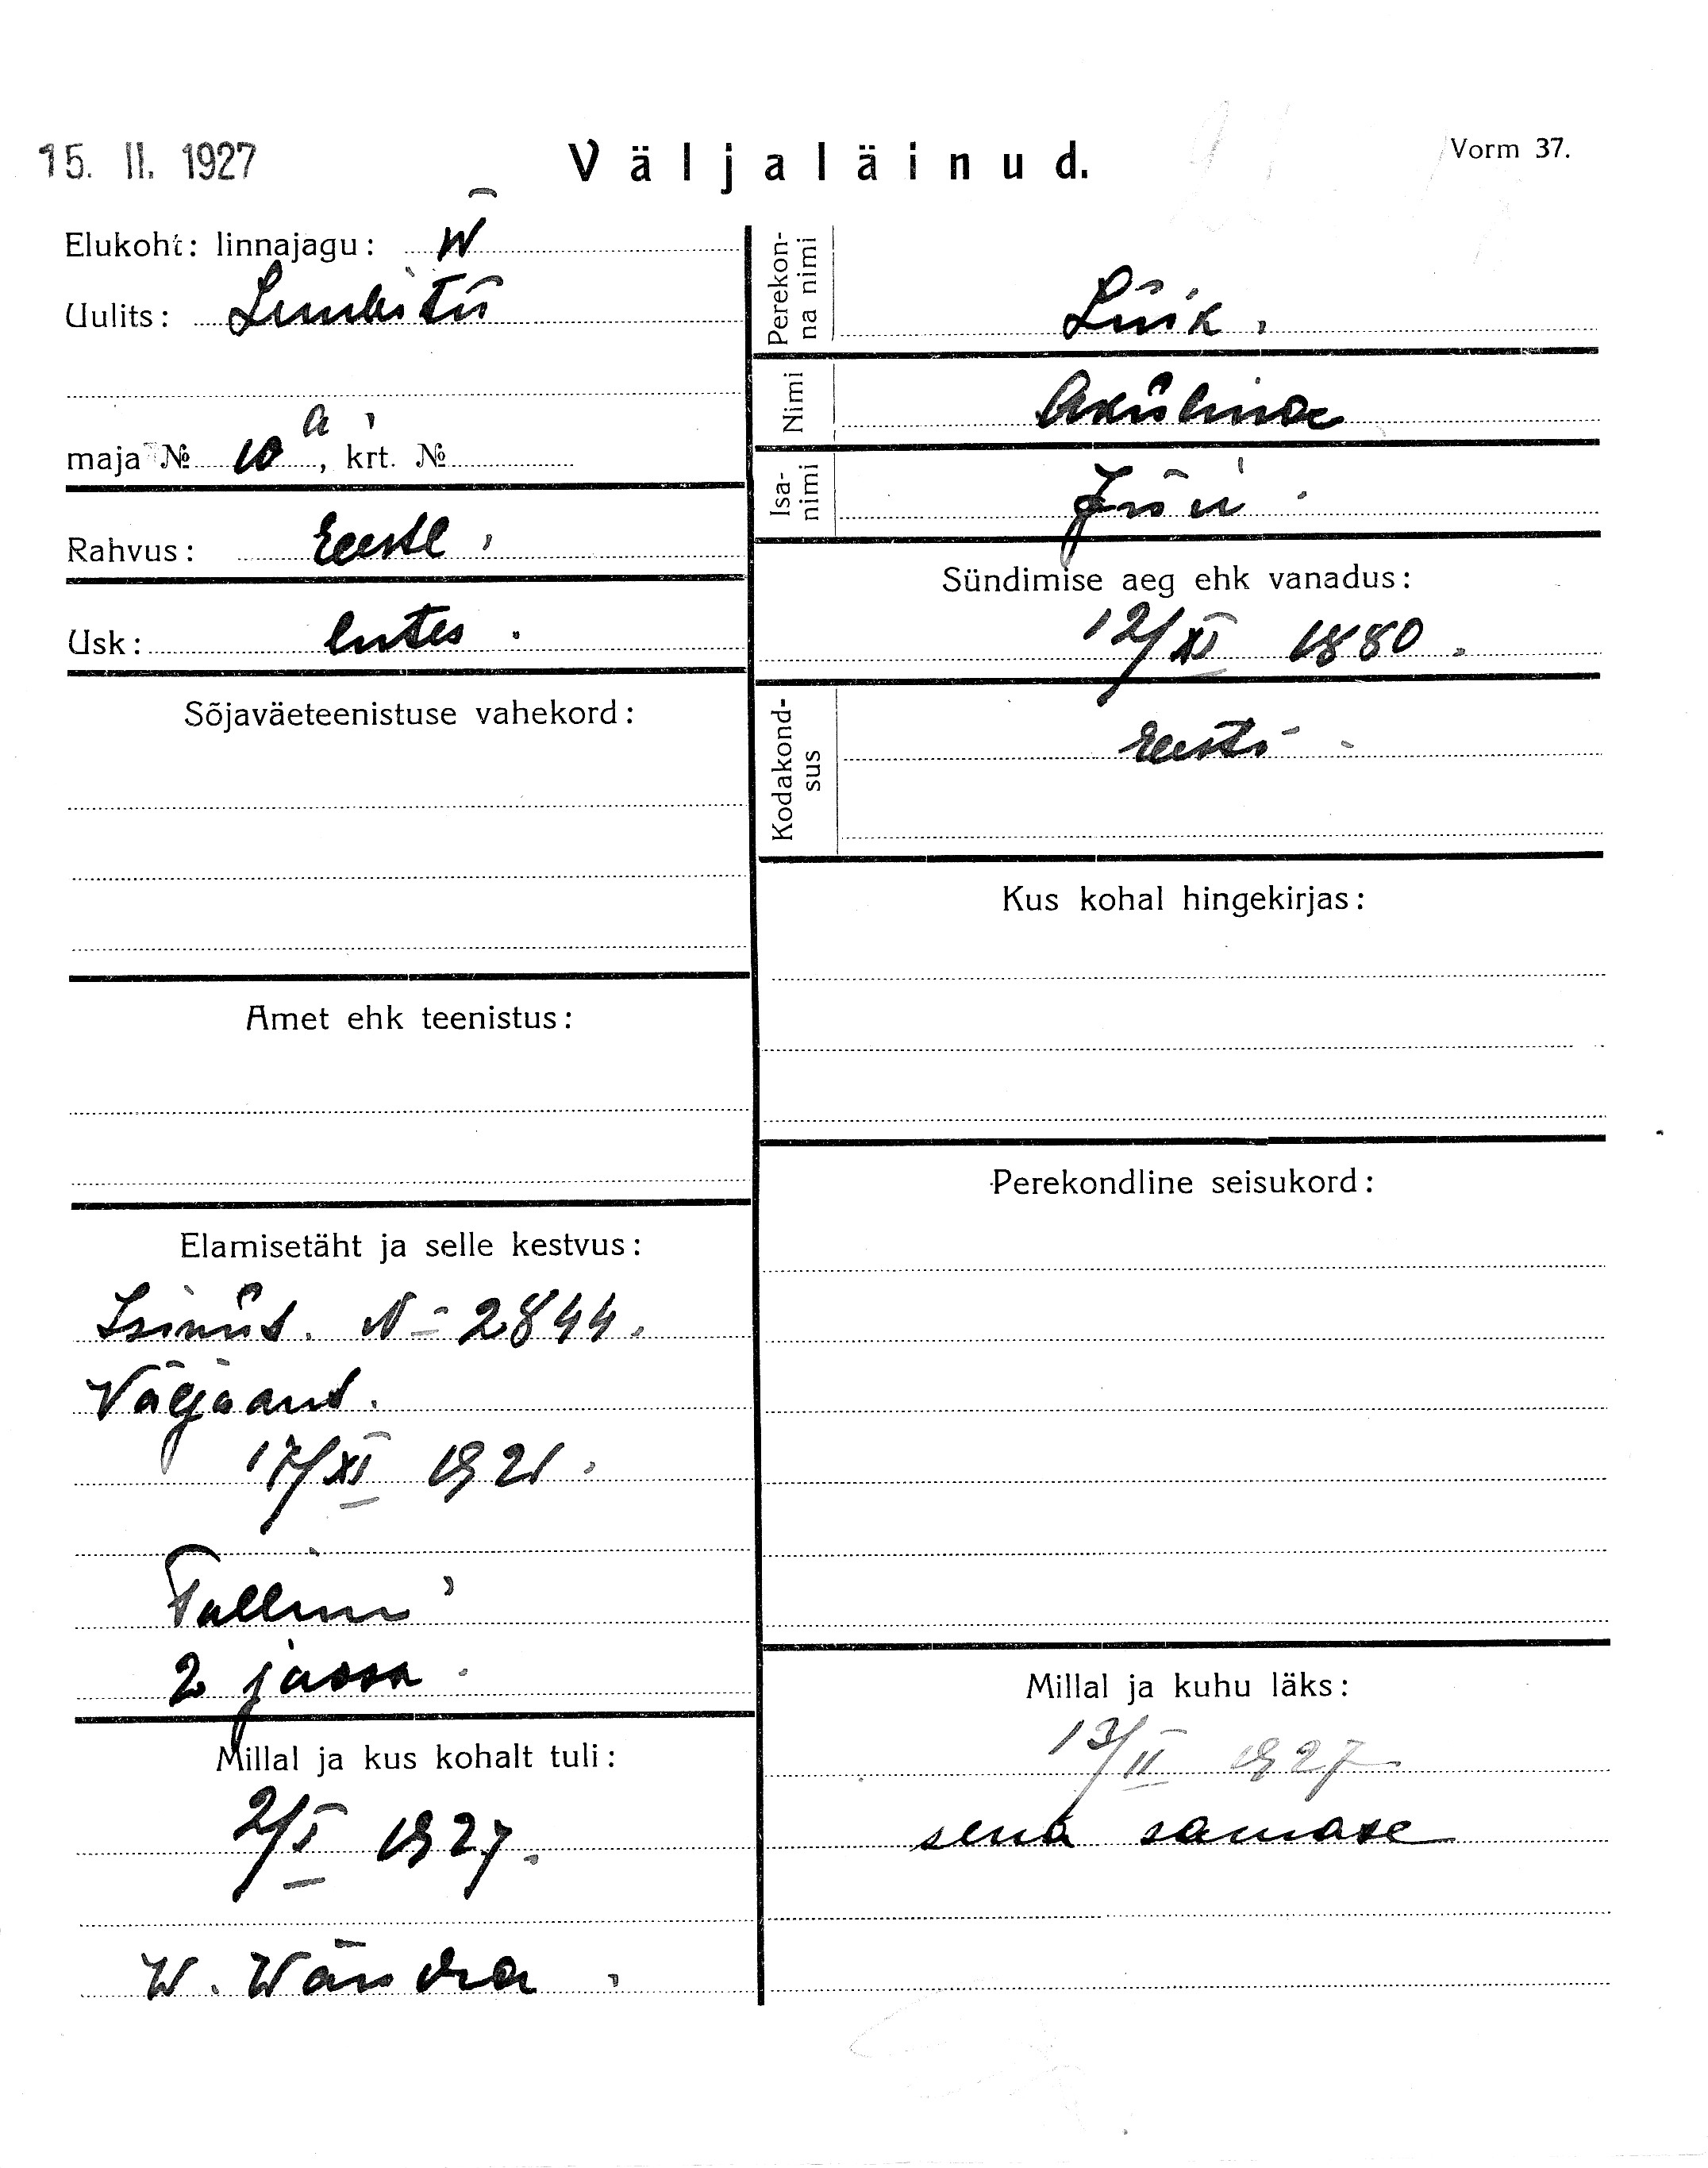 15. II. 1927
Väljaläinud.
Vorm 37.
Elukoht: linnajagu: IV
Uulits: Lembitu
maja № 10 a, krt. №
Rahvus: Eesti
Usk: lutes.
Sõjaväeteenistuse vahekord:
Amet ehk teenistus:
Elamisetäht ja selle kestvus:
Isiniit. N= 2844.
Väljaant.
17/XI 1921.
Tallinn
2 jaosk.
Millal ja kus kohalt tuli:
2/I 1927.
W. Wändra
Perekonna nimi
Luik.
Nimi
Akulina
Isanimi
Jüri
Sündimise aeg ehk vanadus:
12/XI 1880.
Kodakondsus
Eesti
Kus kohal hingekirjas:
Perekondline seisukord:
Millal ja kuhu läks:
13/II 1927
senna samasse